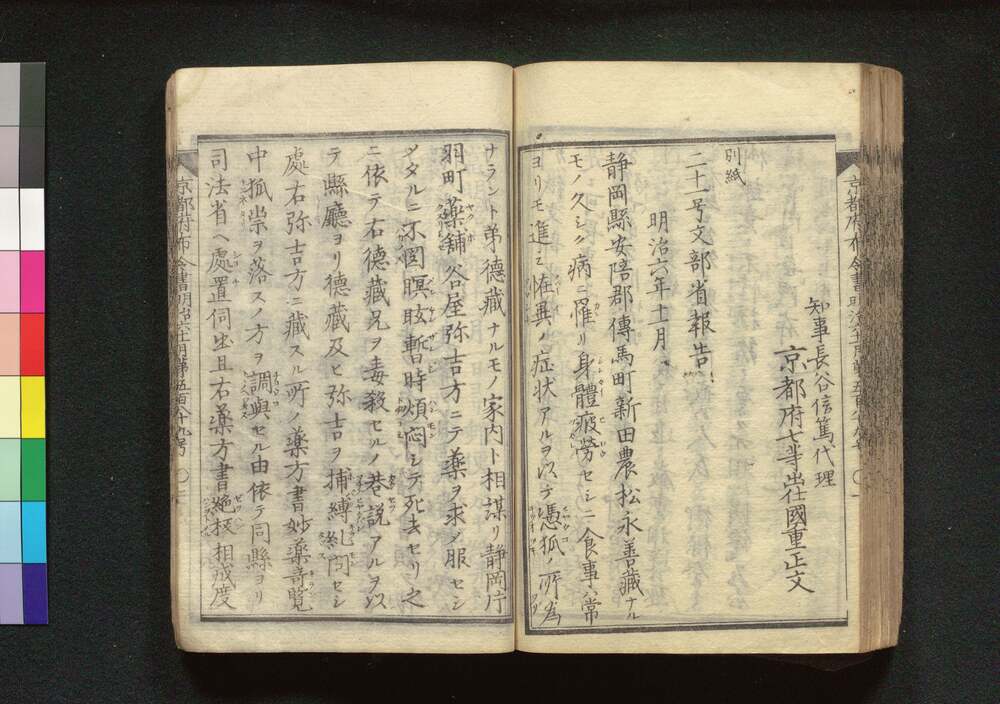 知事長谷信篤代理
京都府七等出仕國重正文
別紙
二十一号文部省報告
明治六年十一月
静岡縣安陪郡傳馬町新田農松永善藏ナル
モノ久シク病ニ罹リ身體疲勞セシニ食事ハ常
ヨリモ進ミ怪異ノ症状アルヲ以テ憑狐ノ所為
ナラント弟德藏ナルモノ家内ト相謀リ静岡庁
羽町藥舗谷屋弥吉方ニテ藥ヲ求メ服セシ
メタルニ不圖瞑眩暫時煩悶シテ死去セリ之
ニ依テ右德藏兄ヲ毒殺セルノ巷説アルヲ以
テ縣廳ヨリ德藏及ヒ弥吉ヲ捕縛糺問セシ
處右弥吉方ニ藏スル所ノ藥方書妙藥奇覧
中狐祟ヲ落スノ方ヲ調與セル由依テ同縣ヨリ
司法省ヘ處置伺出且右藥方書絶板相成度
京都府布令書明治六十一月第五百八十九号